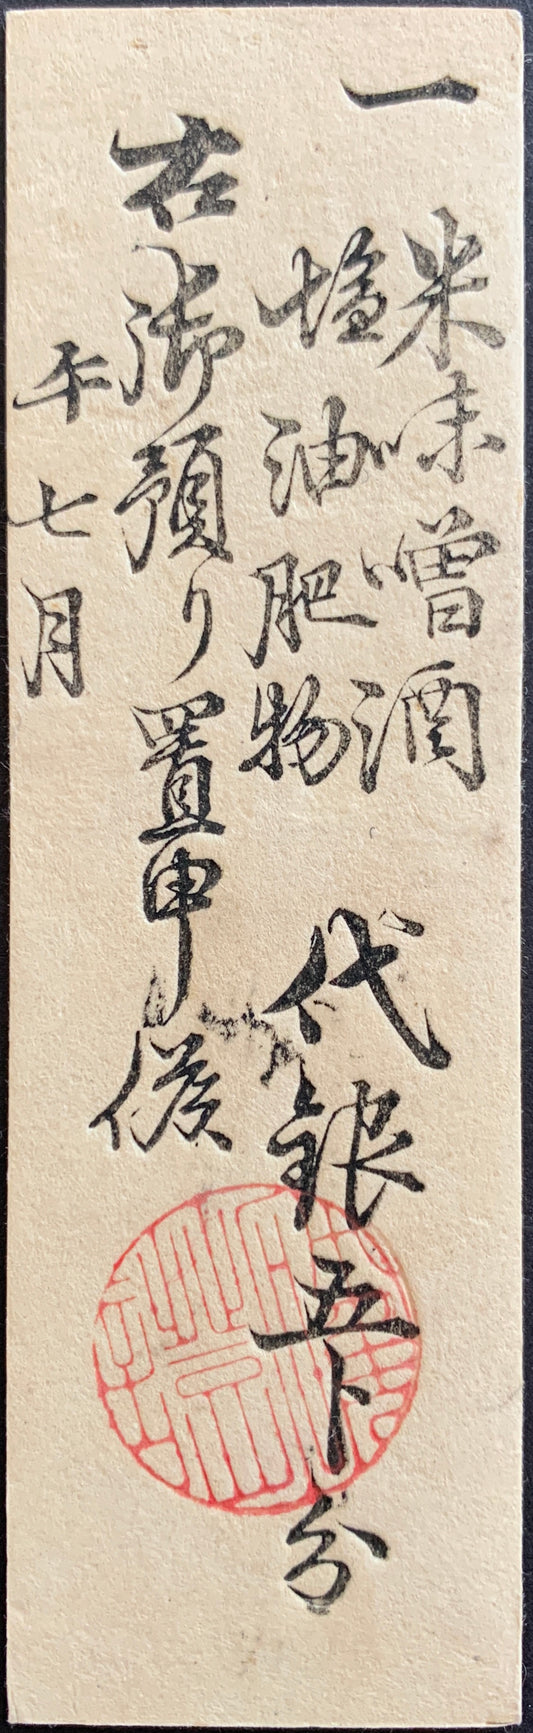 一
米味噌酒
塩油肥物
代銀五卜分
右御預り置申候
午七月